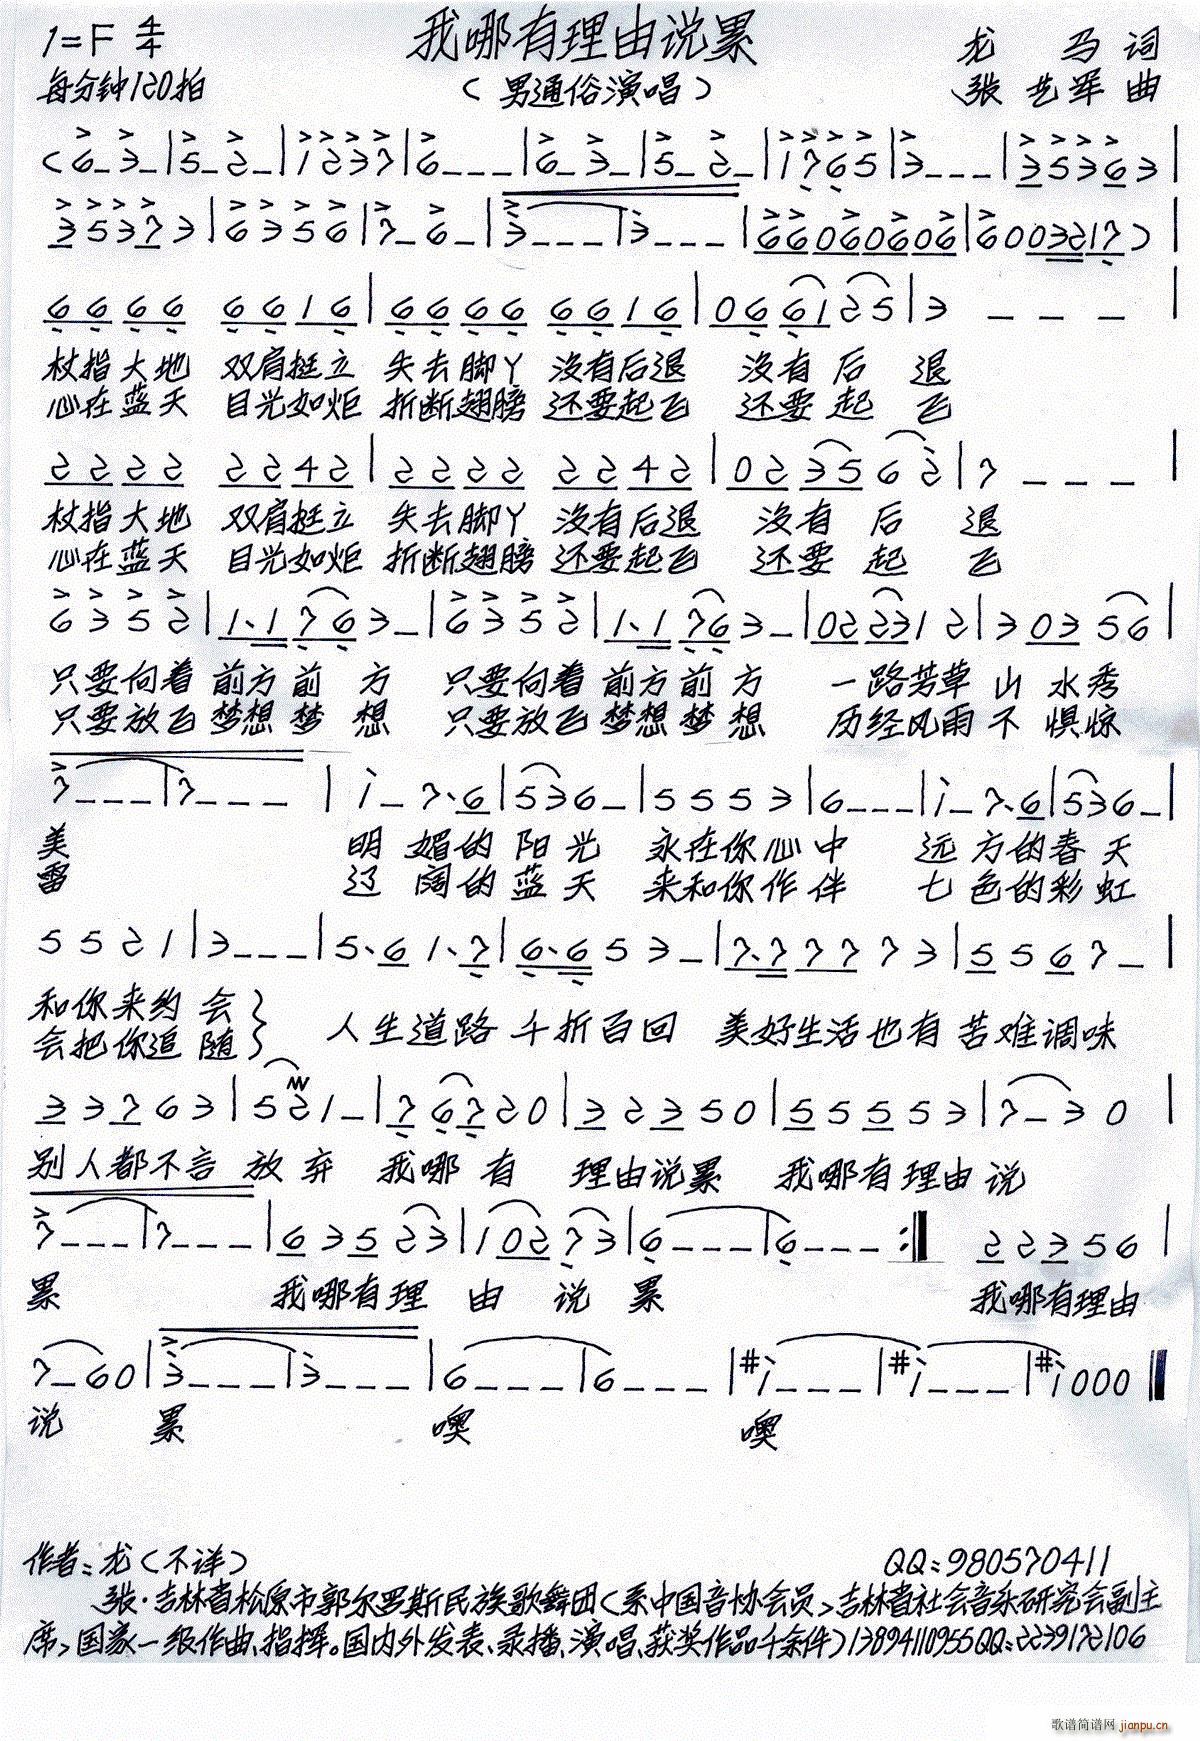 我哪有理由说累
1=F 4/4
龙 马 词
每分钟120拍
(男通俗演唱)
张艺军 曲
(6 – 3 – | 5 – 2 – | 1 2 3 7 | 6 – – – | 6 – 3 – | 5 – 2 – | 1 7 6 5 | 3 – – – | 3 5 3 6 3 |
3 5 3 7 3 | 6 3 5 6 | 7 – 6 – | 3 – – – | 3 – – – | 6 6 0 6 0 6 0 6 | 6 0 0 3 2 1 7 ) |
6 6 6 6 6 6 1 6 | 6 6 6 6 6 6 1 6 | 0 6 6 1 2 5 | 3 – – – |
杖指大地 双肩挺立 失去脚丫 没有后退 没有 后 退
心在蓝天 目光如炬 折断翅膀 还要起飞 还要 起 飞
2 2 2 2 2 2 4 2 | 2 2 2 2 2 2 4 2 | 0 2 3 5 6 2 | 7 – – – |
杖指大地 双肩挺立 失去脚丫 没有后退 没有 后 退
心在蓝天 目光如炬 折断翅膀 还要起飞 还要 起 飞
6 3 5 2 | 1. 1 7 6 3 – | 6 3 5 2 | 1. 1 7 6 3 – | 0 2 2 3 1 2 | 3 0 3 5 6 |
只要向着 前方前 方 只要向着 前方前 方 一路芳草 山 水秀
只要放飞 梦想梦 想 只要放飞 梦想梦 想 历经风雨 不 惧惊
7 – – – | 7 – – – | 1 – 7. 6 | 5 3 6 – | 5 5 5 3 | 6 – – – | 1 – 7. 6 | 5 3 6 – |
美 明 媚的 阳 光 永在你心中 远 方的春 天
雷 辽 阔的 蓝 天 来和你作伴 七 色的彩 虹
5 5 2 1 | 3 – – – | 5. 6 1. 7 | 6. 6 5 3 – | 7. 7 7 7 7 3 | 5 5 6 7 – |
和你来约 会
会把你追 随
人生道路 千折百回 美好生活也有 苦难调味
3 3 7 6 3 | 5 2 1 – | 7 6 7 2 0 | 3 2 3 5 0 | 5 5 5 5 3 | 7 – 3 0 |
别人都不言 放弃 我哪 有 理由说累 我哪有理由 说
7 – – – | 7 – – – | 6 3 5 2 3 | 1 0 2 7 3 | 6 – – – | 6 – – – :| 2 2 3 5 6 |
累 我哪有理 由 说 累 我哪有理由
7 – 6 0 | 3 – – – | 3 – – – | 6 – – – | 6 – – – | #1 – – – | #1 – – – | #1 0 0 0 |
说 累 噢 噢
作者:龙(不详) QQ:980570411
张·吉林省松原市郭尔罗斯民族歌舞团(系中国音协会员,吉林省社会音乐研究会副主
席,国家一级作曲、指挥。国内外发表、录播、演唱、获奖作品千余件)13894110955QQ:2239172106
歌谱简谱网 jianpu.cn